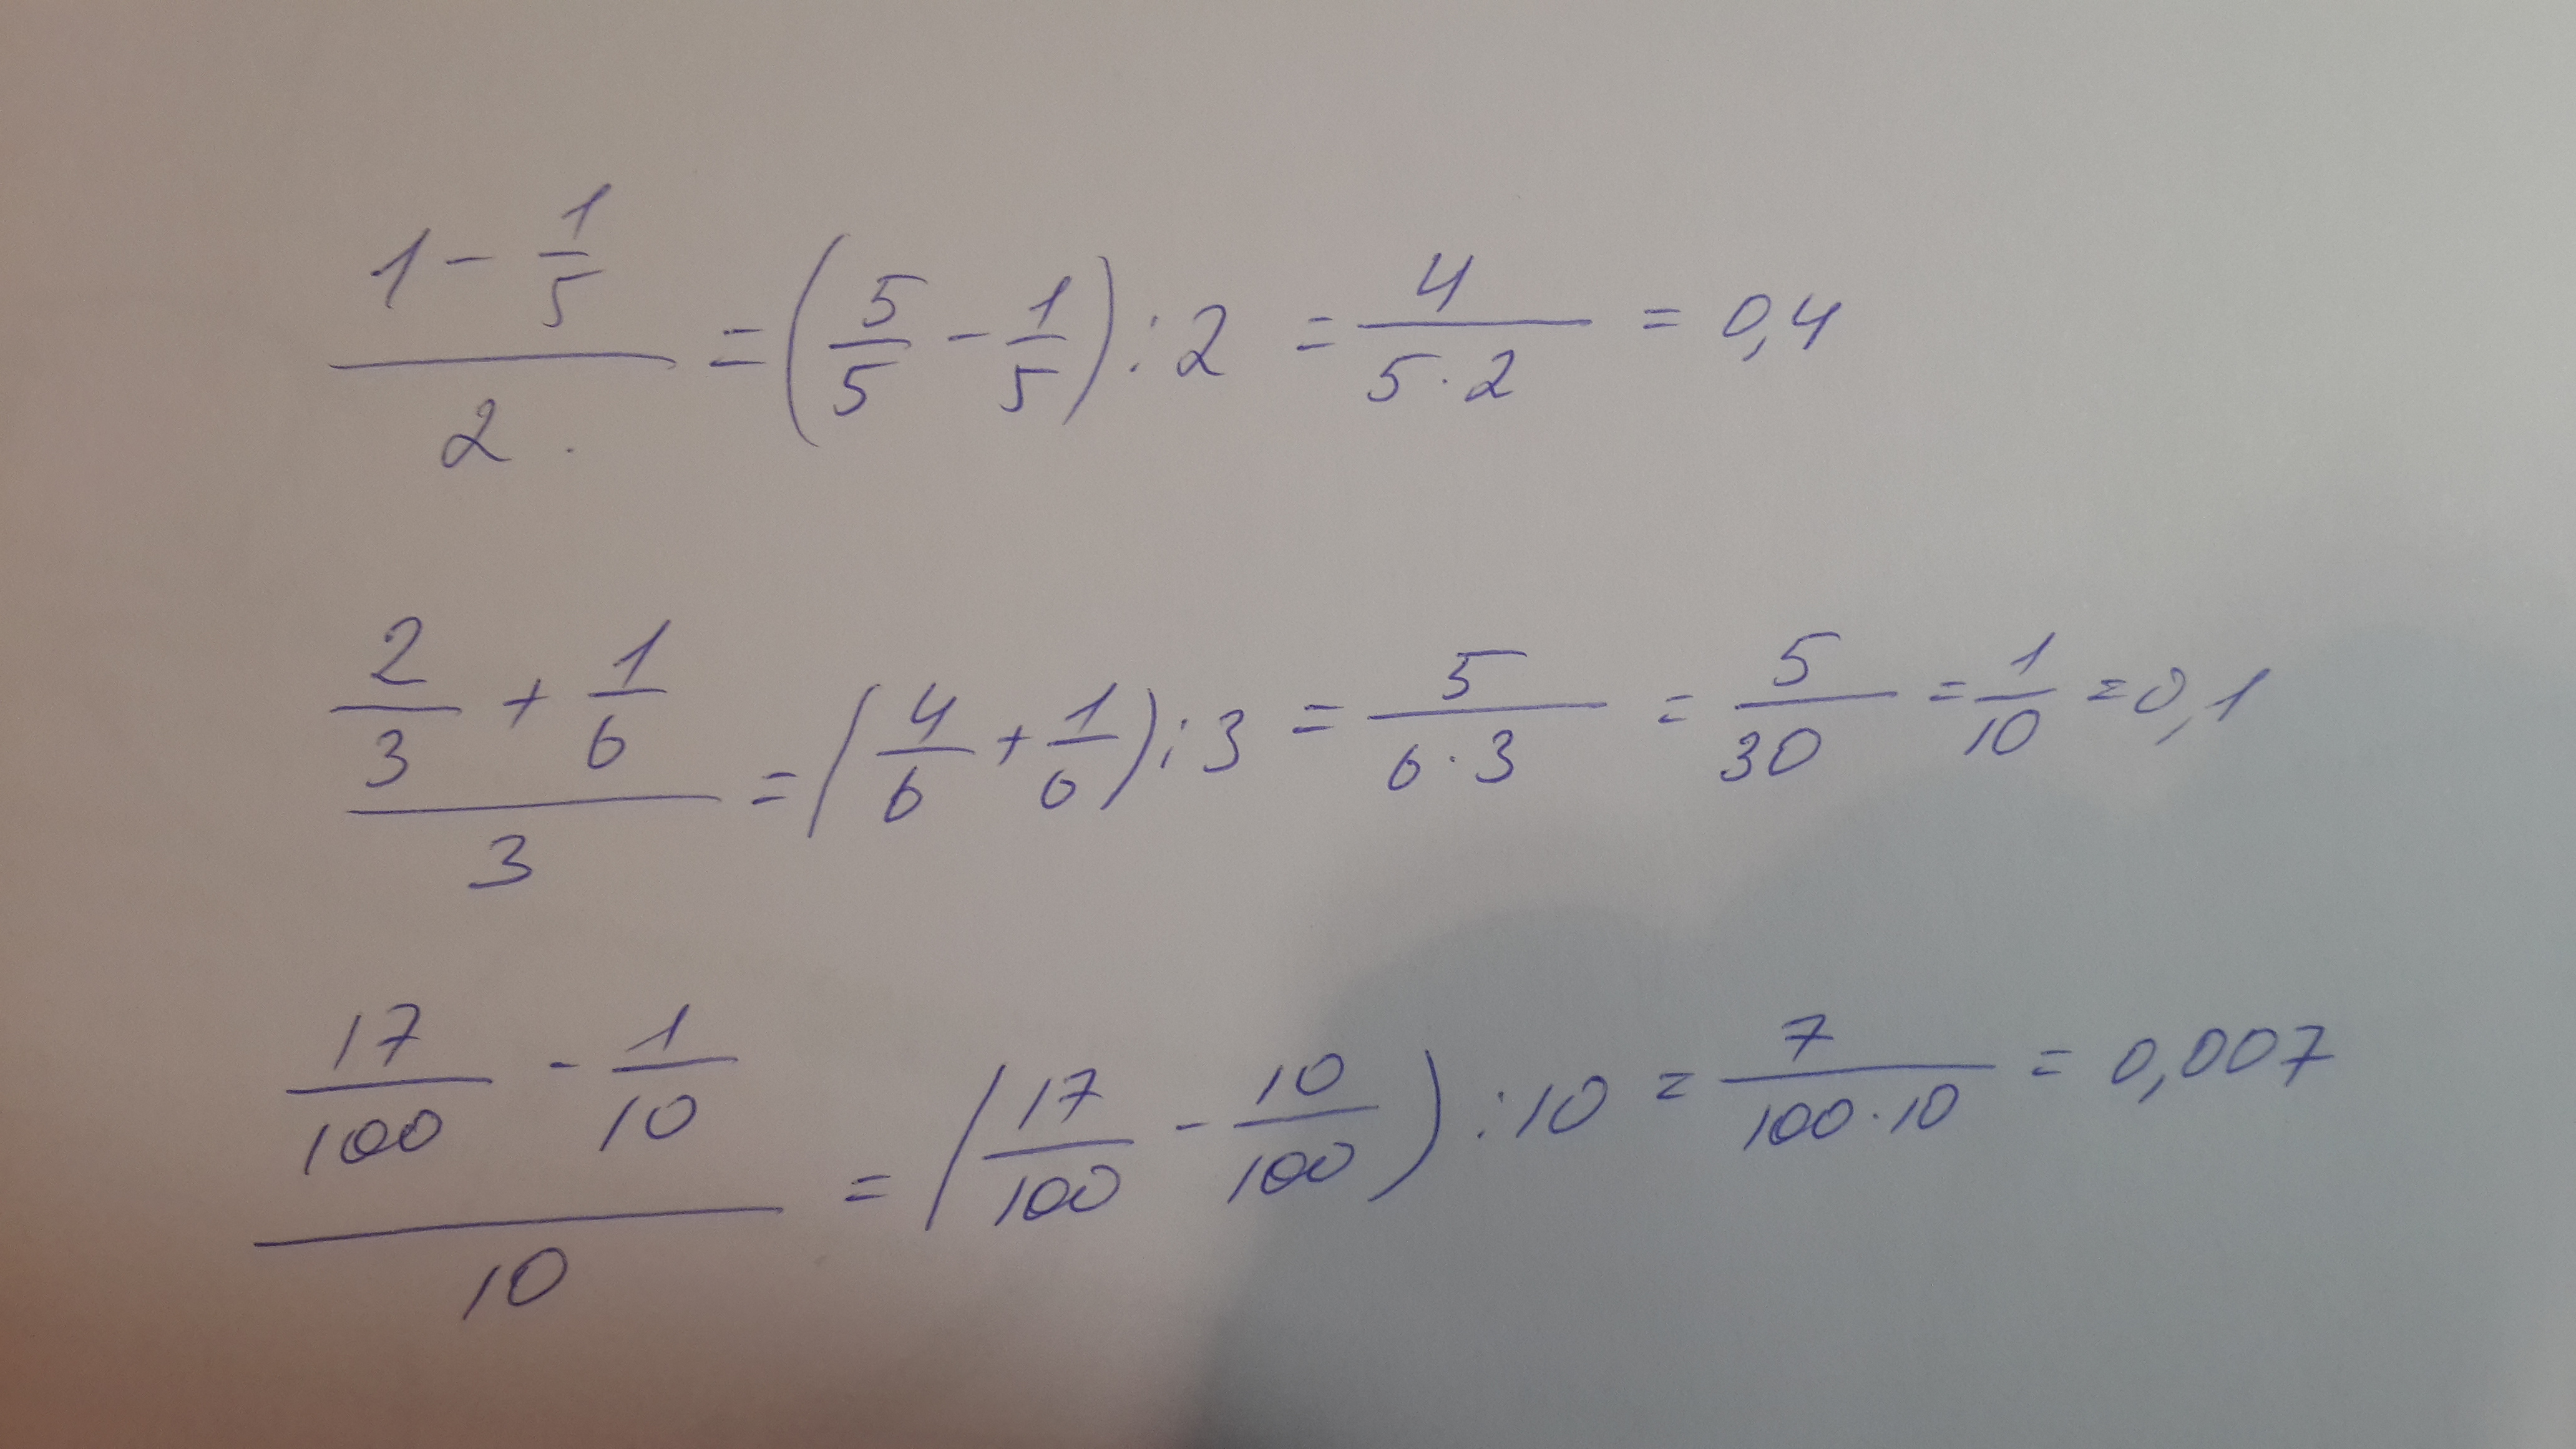 (1 - 1/5)/2 = (5/5 - 1/5) : 2 = 4/(5·2) = 0,4
(2/3 + 1/6)/3 = (4/6 + 1/6) : 3 = 5/(6·3) = 5/30 = 1/10 = 0,1
(17/100 - 1/10)/10 = (17/100 - 10/100) : 10 = 7/(100·10) = 0,007